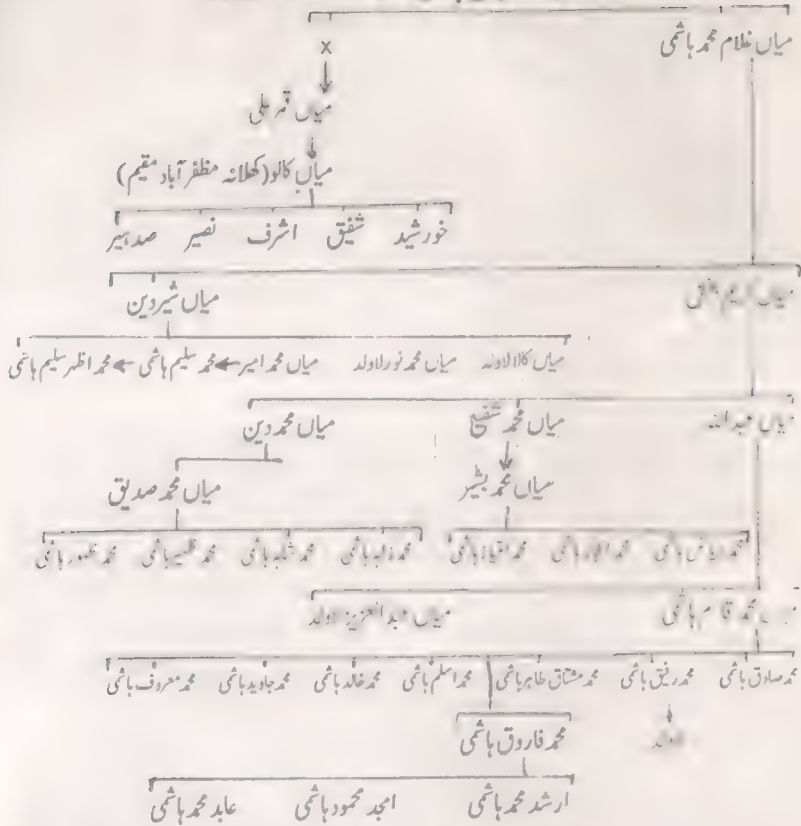 میاں غلام محمد ہاشمی
x
میاں قمر علی
میاں کالو (کھلانہ مظفر آباد مقیم)
خورشید شفیق اشرف نصیر صدہیر
میاں شیر دین
میاں کالا لاولد میاں محمد نور لاولد میاں محمد امیر ← محمد سلیم ہاشمی ← محمد اظہر سلیم ہاشمی
میاں عبداللہ میاں محمد شفیع میاں محمد دین
میاں محمد بشیر میاں محمد صدیق
محمد ریاض ہاشمی محمد اعجاز ہاشمی محمد امتیاز ہاشمی محمد زاہد ہاشمی محمد شاہد ہاشمی محمد ظہیر ہاشمی محمد ظہور ہاشمی
میاں محمد قاسم ہاشمی میاں عبدالعزیز لاولد
محمد صادق ہاشمی محمد رفیق ہاشمی محمد مشتاق طاہر ہاشمی محمد اسلم ہاشمی محمد خالد ہاشمی محمد جاوید ہاشمی محمد معروف ہاشمی
لاولد
محمد فاروق ہاشمی
ارشد محمد ہاشمی امجد محمود ہاشمی عابد محمد ہاشمی